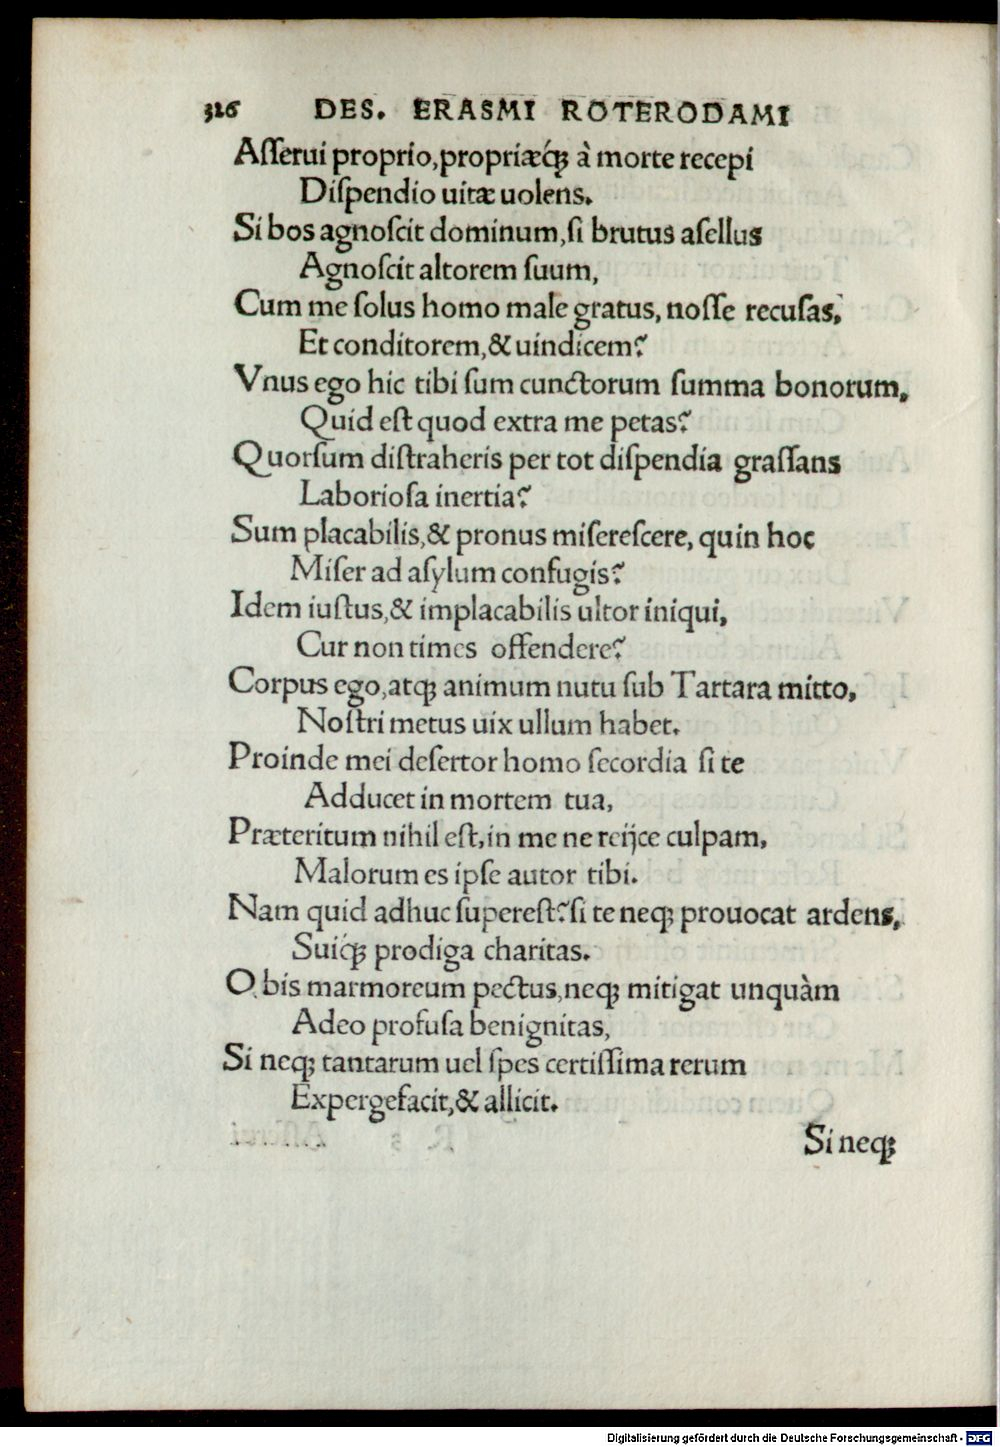 326 DES. ERASMI ROTERODAMI
Aſſerui proprio, propriæq́ꝫ à morte recepi
Diſpendio uitæ uolens.
Si bos agnoſcit dominum, ſi brutus aſellus
Agnoſcit altorem ſuum,
Cum me ſolus homo male gratus, noſſe recuſas,
Et conditorem, & uindicem?
Vnus ego hic tibi ſum cunctorum ſumma bonorum,
Quid eſt quod extra me petas?
Quorſum diſtraheris per tot diſpendia graſſans
Laborioſa inertia?
Sum placabilis, & pronus miſereſcere, quin hoc
Miſer ad aſylum confugis?
Idem iuſtus, & implacabilis ultor iniqui,
Cur non times offendere?
Corpus ego, atqꝫ animum nutu ſub Tartara mitto,
Noſtri metus uix ullum habet.
Proinde mei deſertor homo ſecordia ſi te
Adducet in mortem tua,
Præteritum nihil eſt, in me ne reijce culpam,
Malorum es ipſe autor tibi.
Nam quid adhuc ſupereſt? ſi te neqꝫ prouocat ardens,
Suiq́ꝫ prodiga charitas.
O bis marmoreum pectus, neqꝫ mitigat unquàm
Adeo profuſa benignitas,
Si neqꝫ tantarum uel ſpes certiſſima rerum
Expergefacit, & allicit.
Si neqꝫ
Digitalisierung gefördert durch die Deutsche Forschungsgemeinschaft - DFG